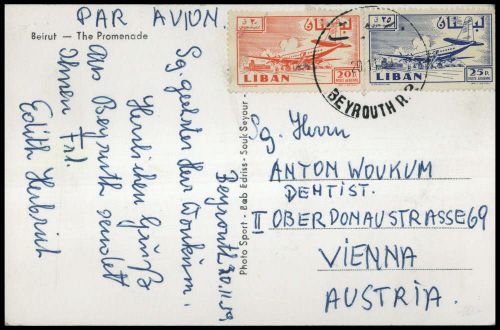 PAR AVION.
Beirut - The Promenade
Beyrouth 20.11.59
Sg. geehrter Herr Woukum.
Herzlichen Gruß
aus Beyruth sendet
Ihnen Frl.
Edith
Photo Sport - Bab Edriss - Souk Seyour -
لبنان
LIBAN
20P
لبنان
LIBAN
25P.
BEYROUTH R.P.
Sg. Herrn
ANTON WOUKUM
DENTIST.
II OBERDONAUSTRASSE 69
VIENNA
AUSTRIA.